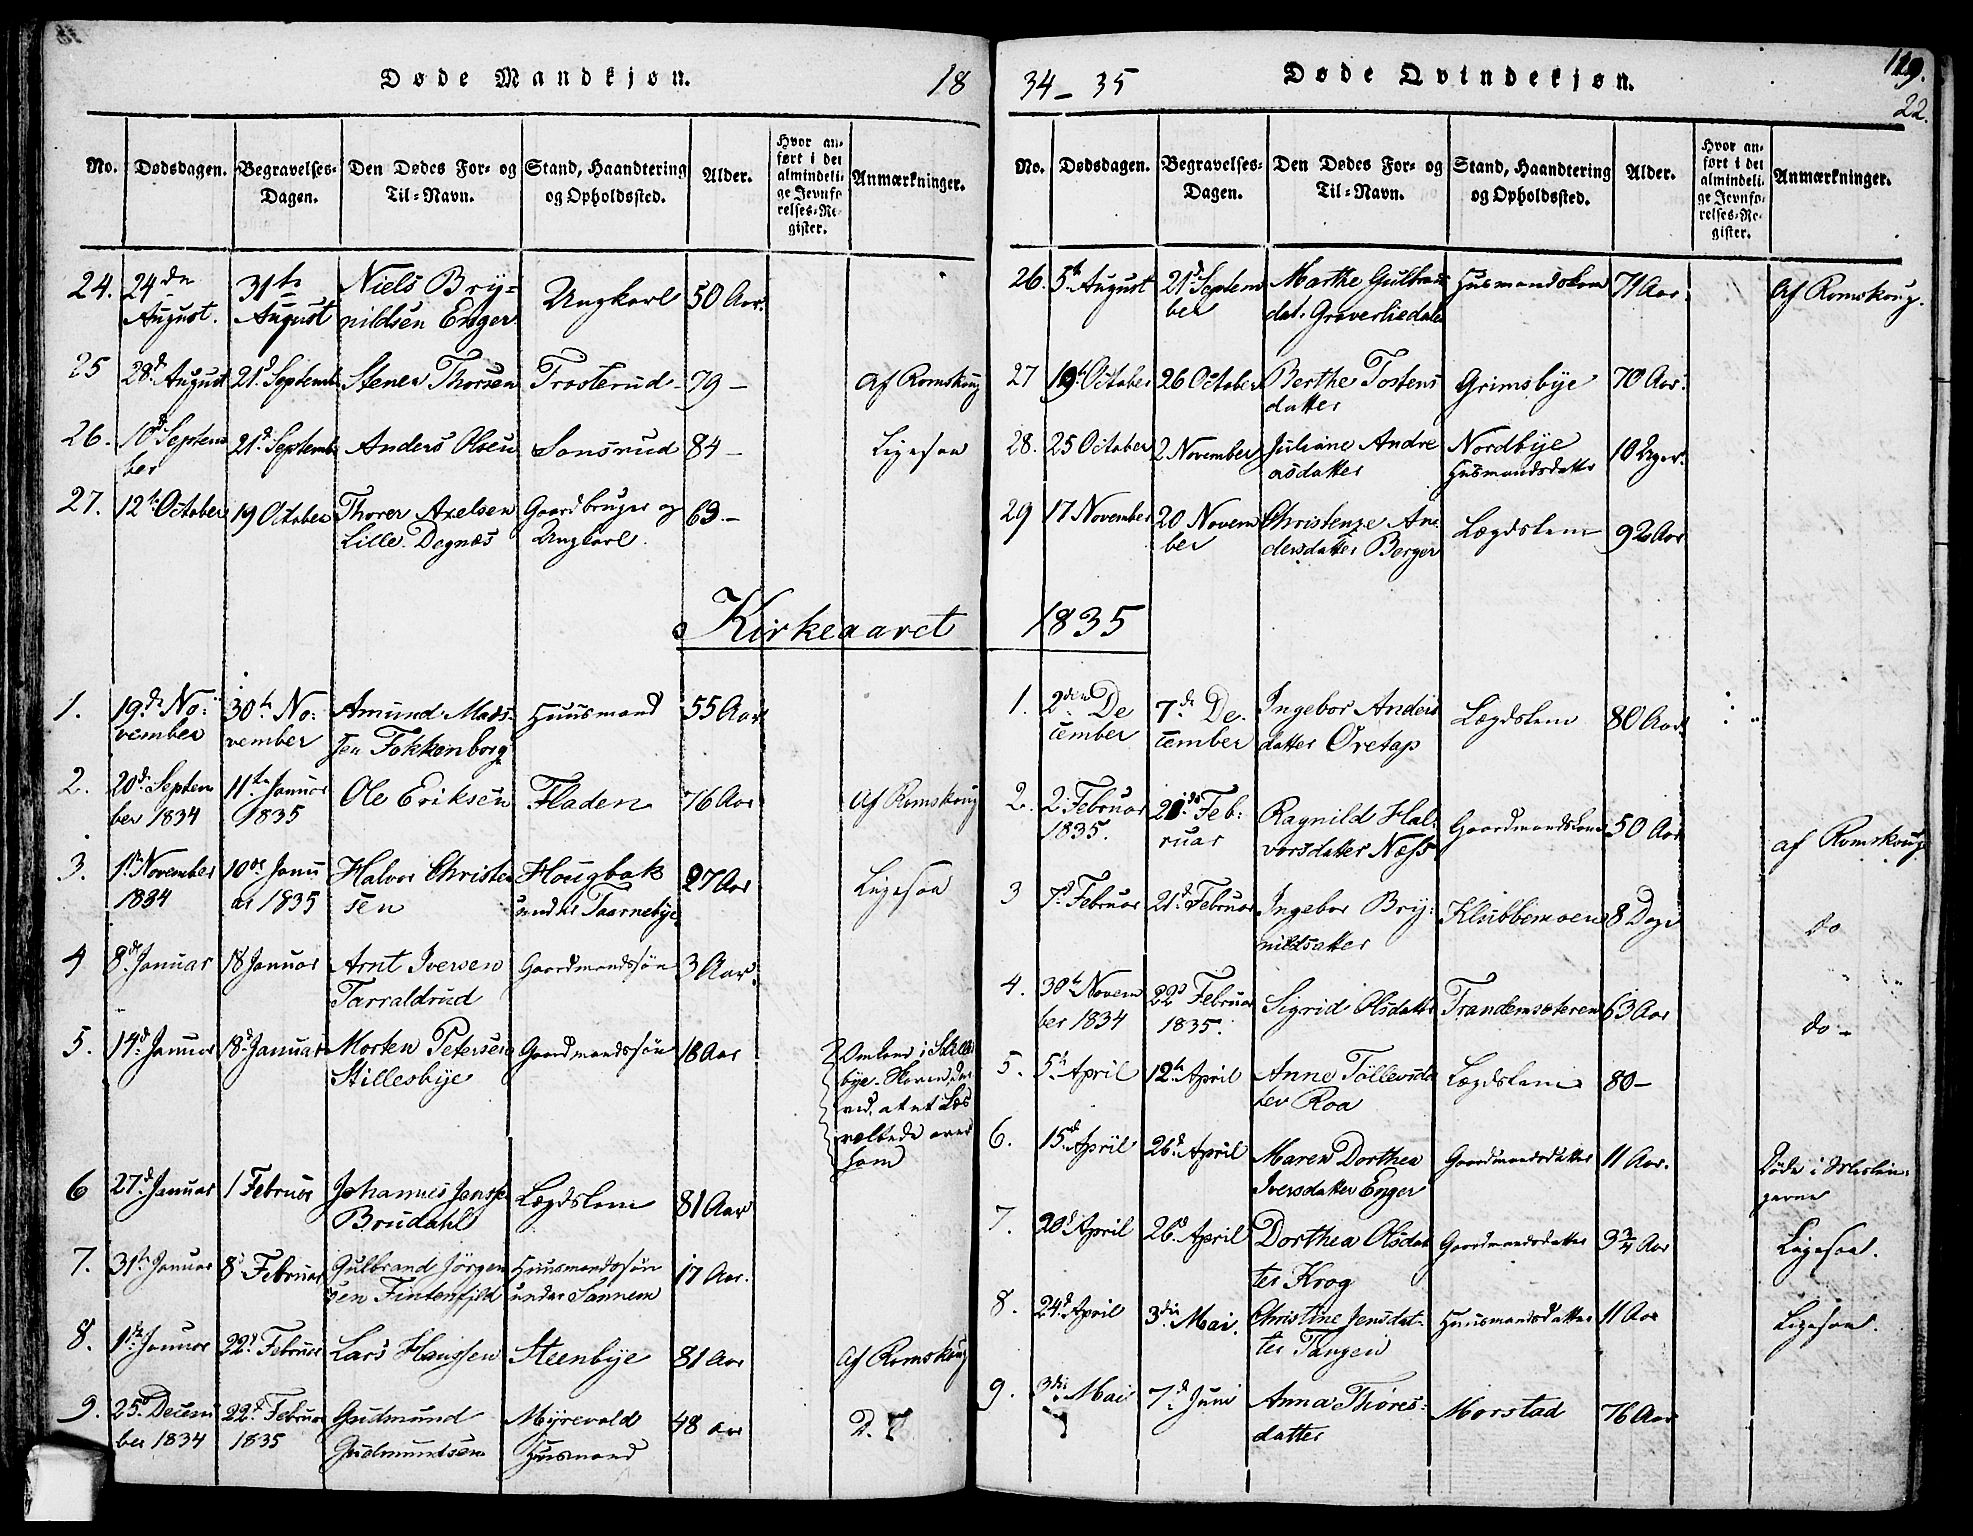 Døde Mandkjøn.
18
No. Dødsdagen. Begravelses-Dagen. Den Dødes For- og Til-Navn. Stand, Haandtering og Opholdssted. Alder. Hvor anført i det almindelige Jevnførelses-Register. Anmærkninger.
24. 24de August. 31te August Niels Brynildsen Enger Ungkarl 50 Aar.
25 28d. August 21d. Septemb. Stener Thorsen Trosterud 79 – af Romskoug
26. 10d. September 21d. Septemb. Anders Olsen Sonsrud 84 – Ligesaa
27. 12t. October 19 October Thorer Axelsen Lille Degnæs Gaardbruger og Ungkarl 63 –
Kirkeaaret
1. 19de November 30te November Amund Madsen Fokkenborg Huusmand 55 Aar
2. 20de September 1834 11te Januar 1835 Ole Eriksen Fladen 76 Aar af Romskoug
3. 1te November 1834 10de Januar 1835 Halvor Christensen Hougbak under Taarnebye 27 Aar Ligesaa
4 8de Januar 18 Januar Arnt Iversen Tarraldrud Gaardmandssøn 3 Aar.
5. 14d. Januar 18d. Januar Morten Petersen Stillesbye Gaardmandssøn 18 Aar Omkom i Stillesbye-Skoven, derved, at et Læs væltede over ham
6 27d. Januar 1 Februar Johannes Jensen Brudahl Lægdslem 81 Aar
7. 31te Januar 8d. Februar Gulbrand Jörgensen Fintenfjeld Huusmandssøn under Sannem 17 Aar.
8. 1te Januar 22d. Februar Lars Hanssen Steenbye 81 Aar af Romskoug
9. 25d. December 1834 22d. Februar 1835 Gudmund Gudmundsen Myrevold Huusmand 48 aar
34 – 35
Døde Qvindekjøn.
119.
22.
No. Dødsdagen. Begravelses-Dagen. Den Dødes For- og Til-Navn. Stand, Haandtering og Opholdssted. Alder. Hvor anført i det almindelige Jevnførelses-Register. Anmærkninger.
26. 5te August 21d. September Marthe Gulbransdat. Graverliedalen Husmandskone 71 Aar. Af Romskoug.
27 19t. October 26 October Berthe Tostensdatter Grimsbye 70 Aar.
28. 25 October 2 November Juliane Andreasdatter Nordbye Husmandsdatter 10 Uger.
29 17 November 20 November Christense Andersdatter Berger Lægdslem 92 Aar
1835
1. 2den December 7de December Ingebor Andersdatter Oretap Lægdslem 80 Aar.
2. 2. Februar 1835. 21de Februar Ragnild Halvorsdatter Næss Gaardmandskone 50 Aar af Romskoug
3 7d. Februar 21d. Februar Ingebor Brynildsatter Klubbemoen 8 Dage do
4. 30te November 1834 22d Februar 1835. Sigrid Olsdatter Trandemsæteren 63 Aar do –
5. 5te April 12te April Anne Töllevsdatter Roa Lægdslem 80 –
6. 15d. April 26d. April Maren Dorthea Iversdatter Enger Gaardmandsdatter 11 Aar. Døde i Meslingerne
7. 20d April 26d. April Dorthea Olsdatter Krog Gaardmandsdatter 3 3/4 Aar Ligesaa.
8. 24d. April 3die Mai. Christine Jensdatter Tangen Huusmandsdatter 11 Aar Ligesaa.
9. 3die Mai 7d. Juni Anna Thoresdatter Morstad 76 Aar